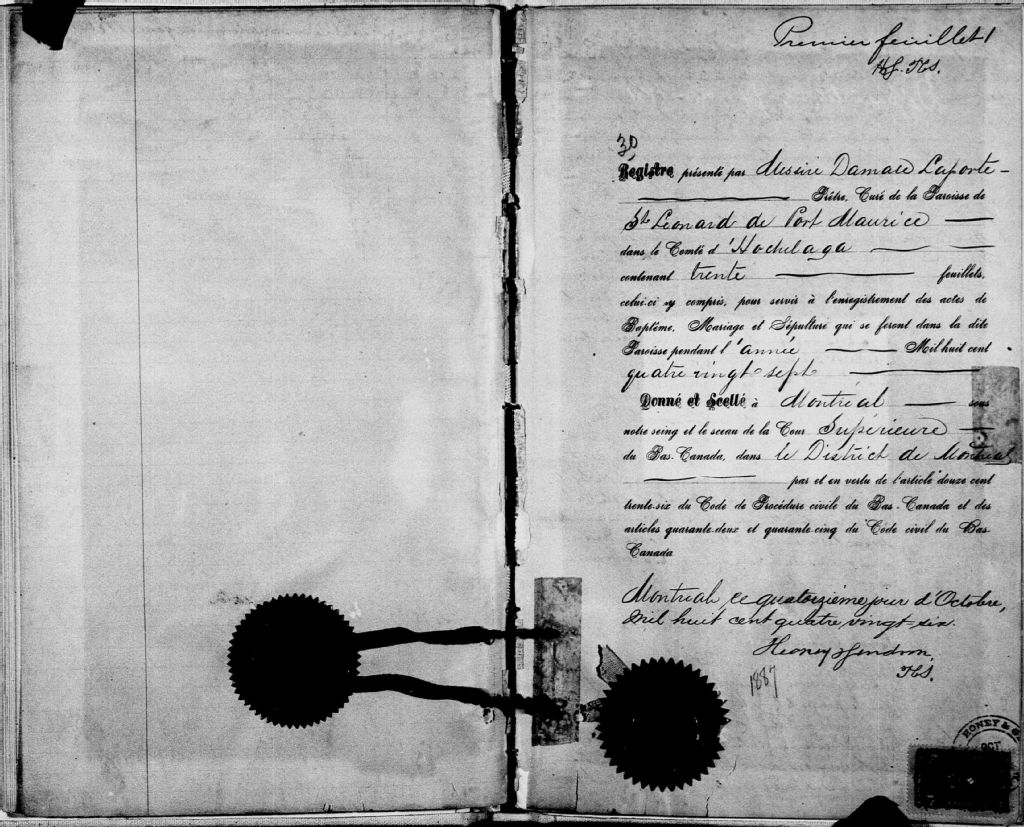 Premier feuillet 1
H&G. PCS.
30
Registre présenté par Messire Damase Laporte
Prêtre, Curé de la Paroisse de
St. Léonard de Port Maurice
dans le Comté d'Hochelaga
contenant trente feuillets,
celui-ci y compris, pour servir à l'enregistrement des actes de
Baptême, Mariage et Sépulture qui se feront dans la dite
Paroisse pendant l'année Mil huit cent
quatre vingt sept
Donné et Scellé à Montréal sous
notre seing et le sceau de la Cour Supérieure
du Bas-Canada, dans le District de Montréal
par et en vertu de l'article douze cent
trente-six du Code de Procédure civile du Bas-Canada et des
articles quarante-deux et quarante-cinq du Code civil du Bas
Canada
Montréal, ce quatorzième jour d'Octobre,
Mil huit cent quatre vingt six.
Honey & Gendron,
PCS.
1887
HONEY & G
OCT